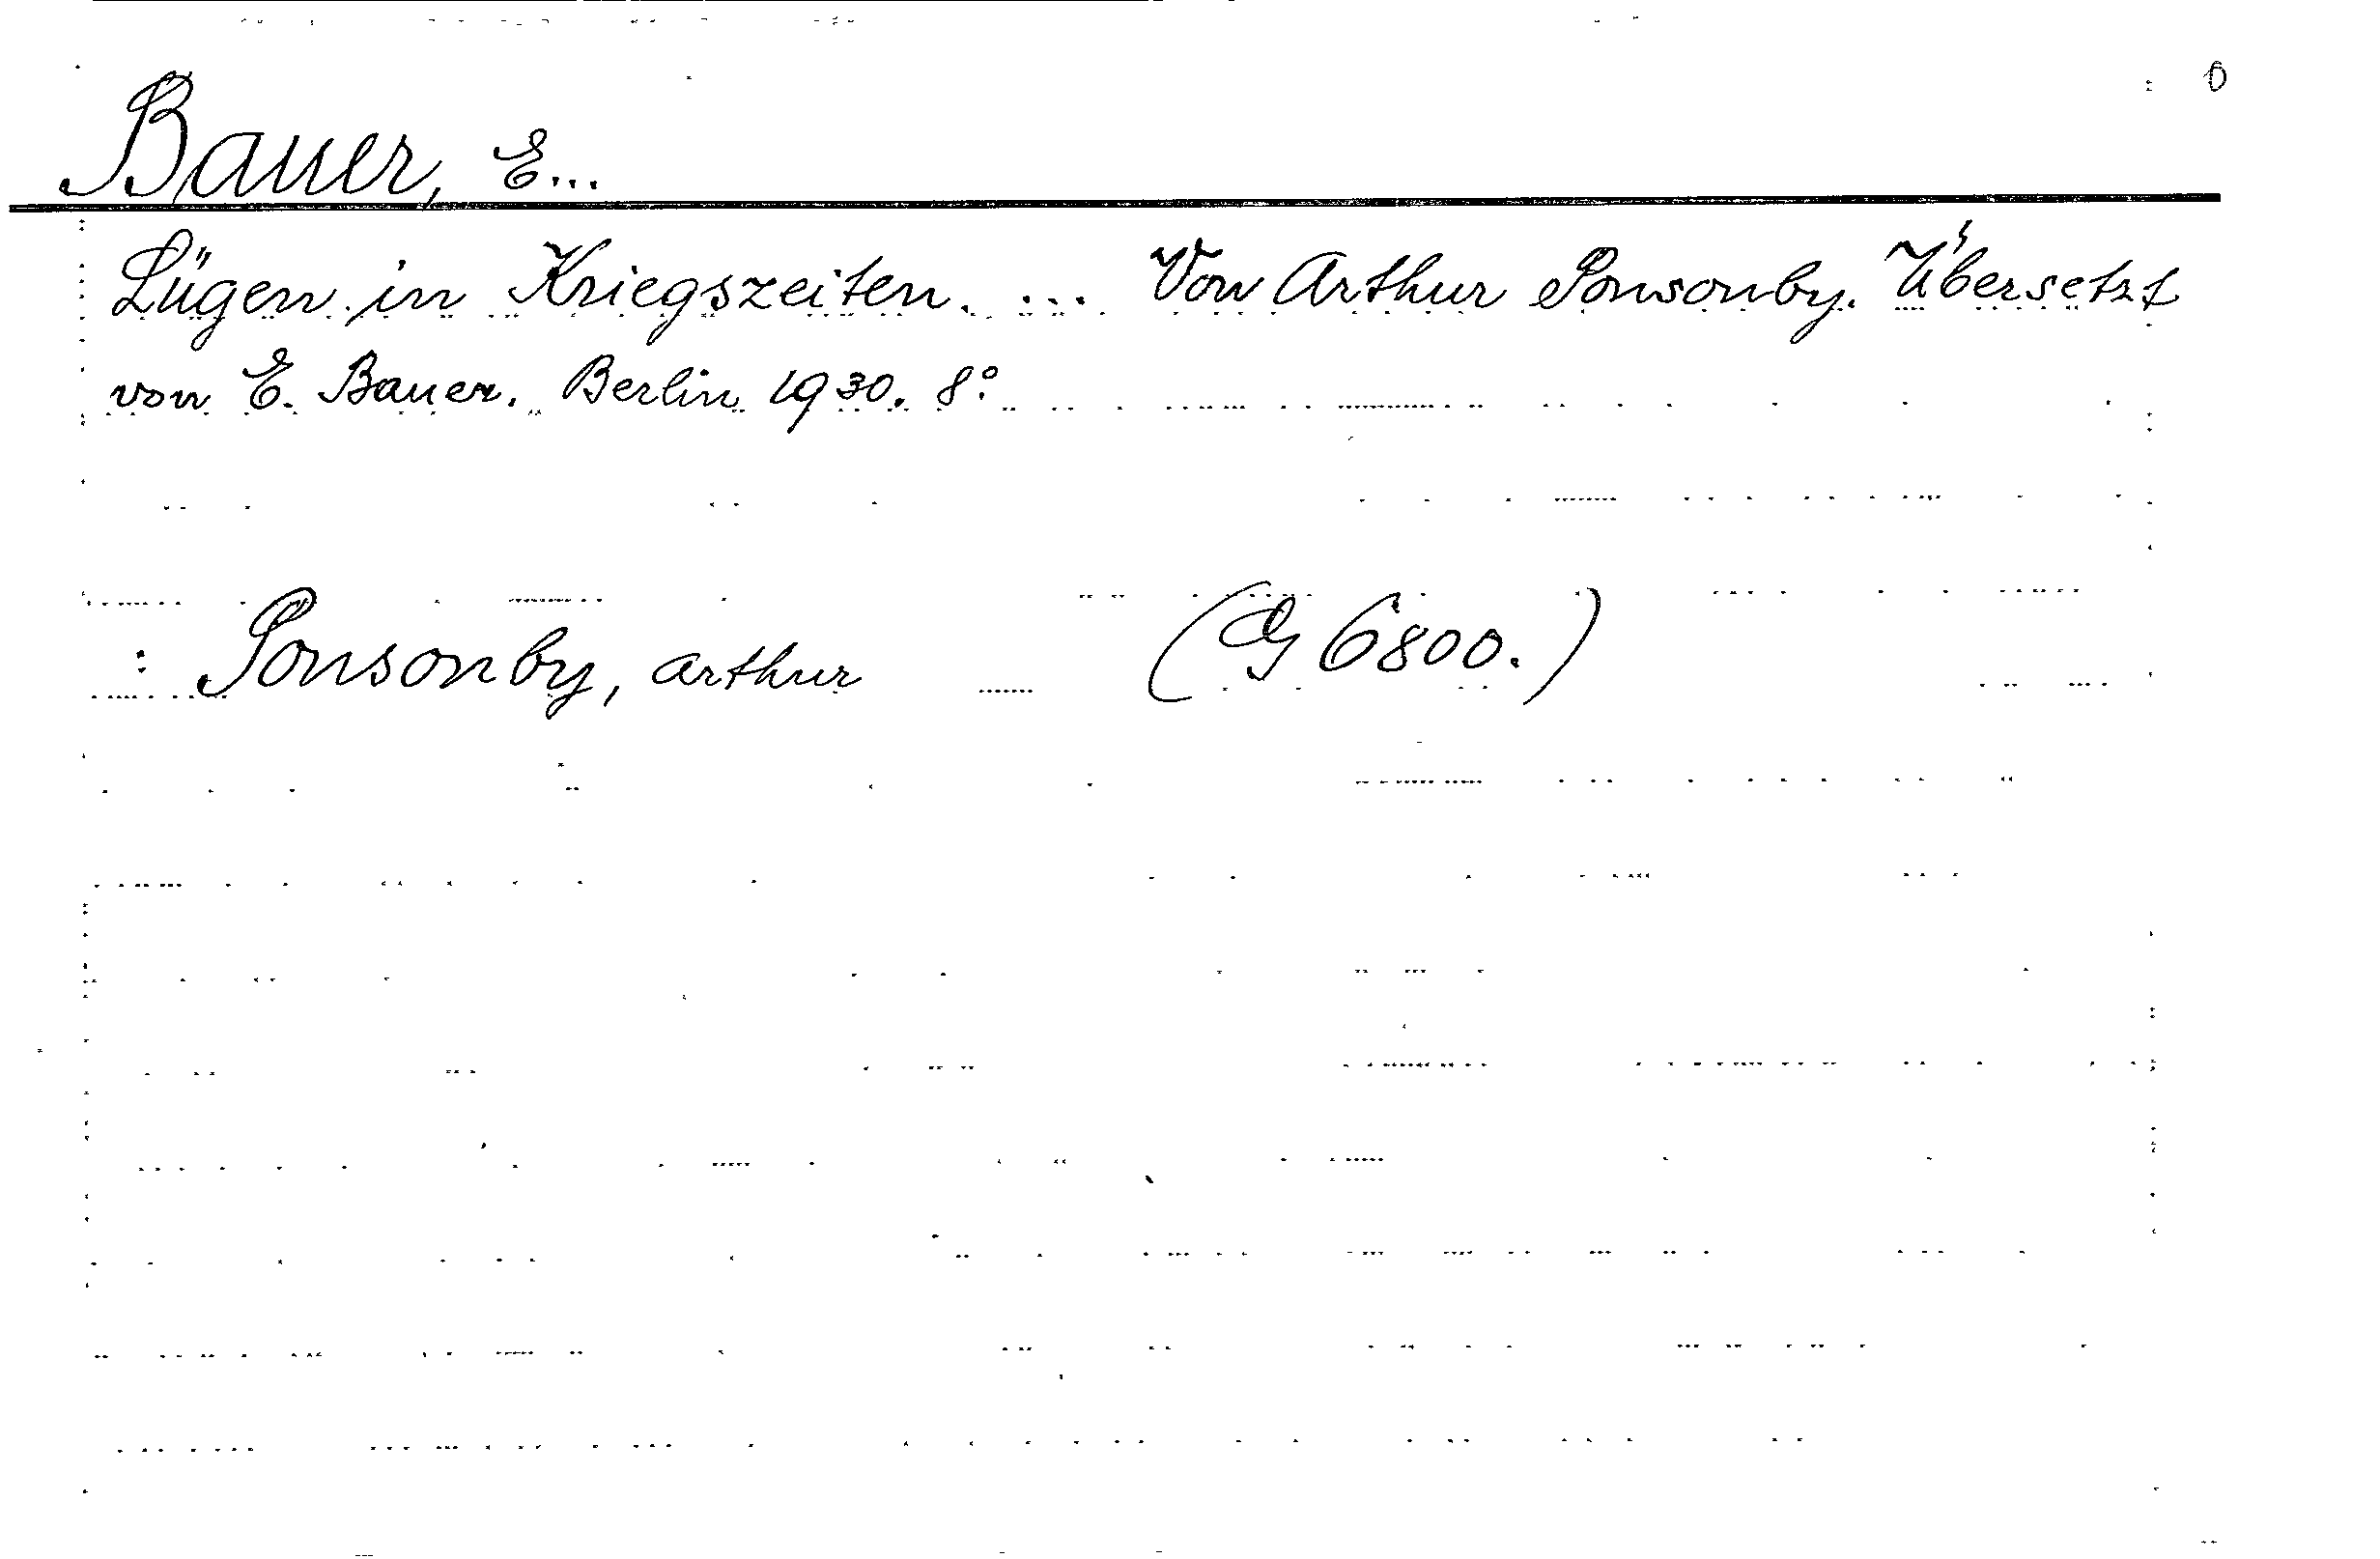 Bauer, E...
Lügen in Kriegszeiten. ... Von Arthur Ponsonby. Übersetzt
von E. Bauer. Berlin 1930. 8°.
: Ponsonby, Arthur (G 6800.)